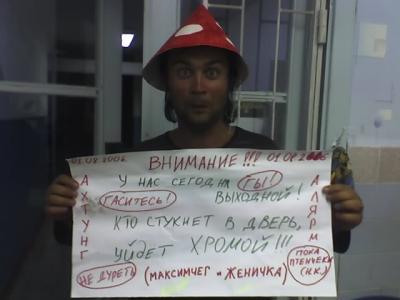 01.08.2006 ВНИМАНИЕ!!! 01.08.2006
У НАС СЕГОДНЯ ГЫ!
ГАСИТЕСЬ! ВЫХОДНОЙ!
КТО СТУКНЕТ В ДВЕРЬ,
УЙДЕТ ХРОМОЙ!!!
НЕ ДУРЕТЬ (МАКСИМЧЕГ и ЖЕНИЧКА) ПОКА ПТЕНЧЕКИ (Н.К.)
АХТУНГ
АЛЯРМ